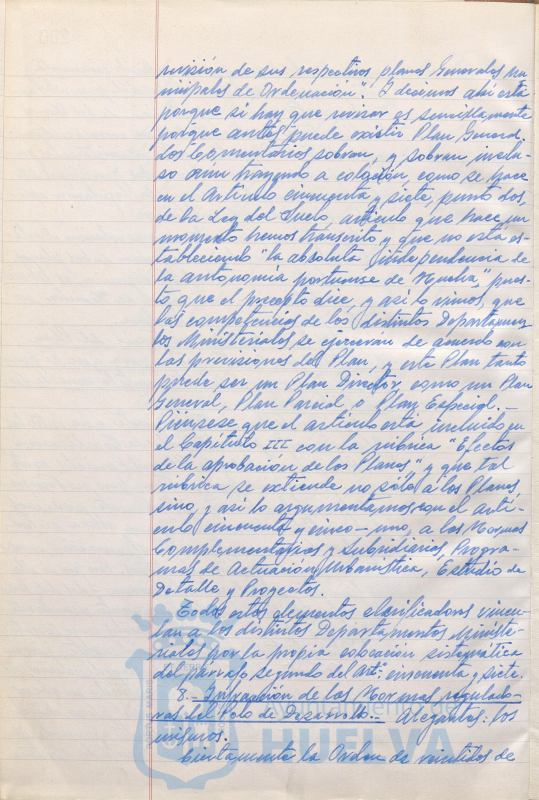 revisión de sus respectivos planes Generales Mu
nicipales de Ordenación". I decimos ahí está
porque si hay que revisar es sencillamente
porque antes puede existir Plan General.
Los Comentarios sobran, y sobran inclu-
so aun trayendo a colación, como se hace
en el Artículo cincuenta y siete, punto dos,
de la Ley del Suelo, artículo que hace un
momento hemos transcrito y que no está es-
tableciendo "la absoluta independencia de
la autonomía portuense de Huelva", pues-
to que el precepto dice, y así lo vimos, que
las competencias de los distintos Departamen
tos Ministeriales se ejerceran de acuerdo con
las previsiones del Plan, y este Plan tanto
puede ser un Plan Director, como un Plan
General, Plan Parcial o Plan Especial.-
Piénsese que el artículo está incluido en
el Capítulo III con la rúbrica "Efectos
de la aprobación de los Planes" y que tal
rúbrica se extiende no sólo a los Planes
sino, y así lo argumentamos con el artí-
culo cincuenta y cinco-uno, a las Normas
Complementarias y Subsidiarias, Progra-
mas de Actuación Urbanística, Estudio de
Detalle y Proyectos.
Todos estos elementos clarificadores vincu-
lan a los distintos Departamentos Ministe-
riales por la propia colocación sistemática
del párrafo segundo del art.º cincuenta y siete.
8.- Infracción de las Normas regulado-
ras del Polo de Desarrollo.- Alegantes: los
mismos.
Ciertamente la Orden de veintidos de
HUELVA